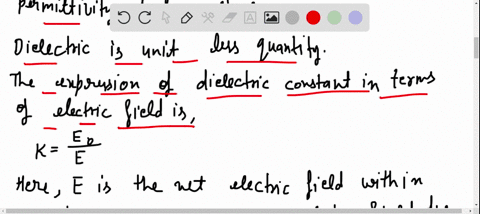 permittivity
Dielectric is unit less quantity.
The expression of dielectric constant in terms
of electric field is,
K = E₀/E
Here, E is the net electric field within